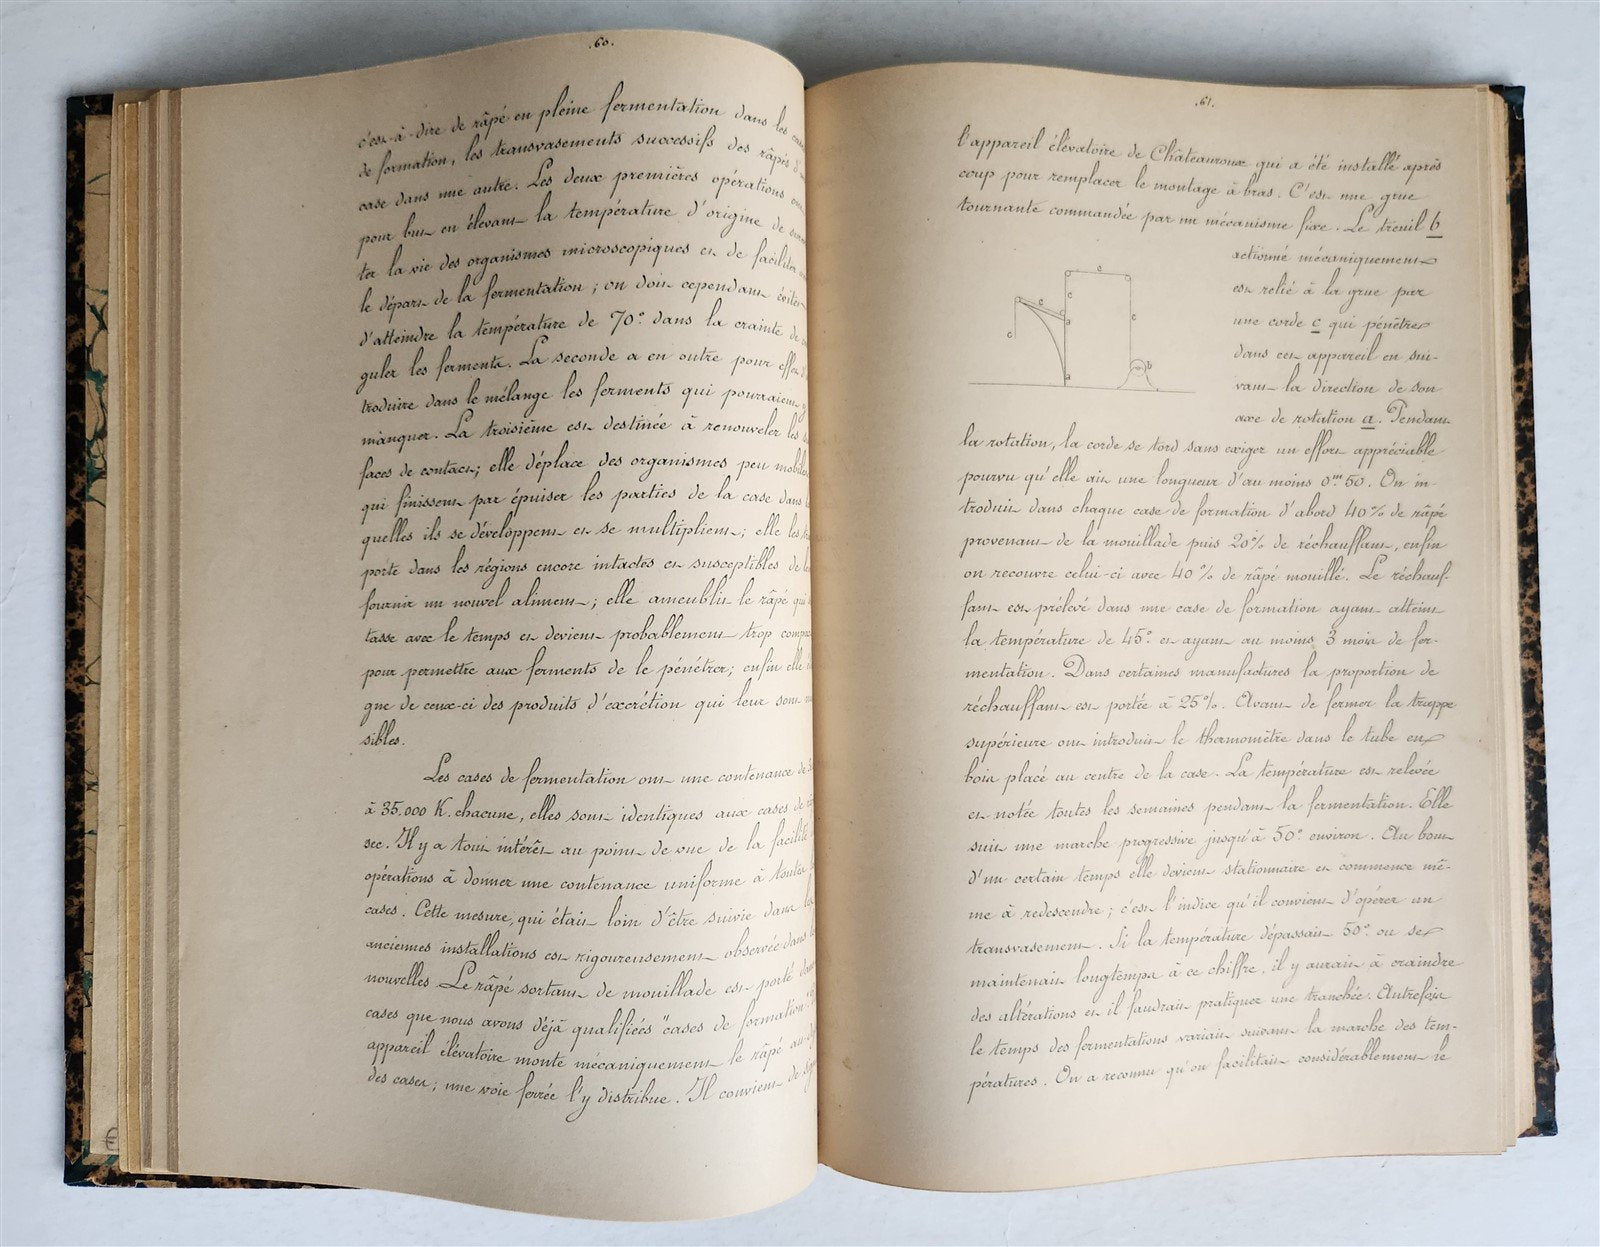 .60.
c'est-à-dire de râpé en pleine fermentation dans les cases
de formation, les transvasements successifs des râpés d'une
case dans une autre. Les deux premières opérations ont
pour but en élevant la température d'origine de
ter la vie des organismes microscopiques et de faciliter
le départ de la fermentation ; on doit cependant éviter
d'atteindre la température de 70° dans la crainte de
guler les ferments. La seconde a en outre pour effet
troduire dans le mélange les ferments qui pourraient y
manquer. La troisième est destinée à renouveler les
faces de contact ; elle déplace des organismes peu mobiles
qui finissent par épuiser les parties de la case dans
quelles ils se développent et se multiplient ; elle les
porte dans les régions encore intactes et susceptibles de
fournir un nouvel aliment ; elle ameublit le râpé qui
tasse avec le temps et devient probablement trop
pour permettre aux ferments de le pénétrer ; enfin elle
gne de ceux-ci des produits d'excrétion qui leur sont
sibles.
Les cases de fermentation ont une contenance de
à 35.000 K. chacune, elles sont identiques aux cases de
sec. Il y a tout intérêt au point de vue de la facilité
opérations à donner une contenance uniforme à toutes
cases. Cette mesure, qui était loin d'être suivie dans les
anciennes installations est rigoureusement observée dans
nouvelles Le râpé sortant de mouillade est porté dans
cases que nous avons déjà qualifiées "cases de formation
appareil élévatoire monte mécaniquement le râpé
des cases ; une voie ferrée l'y distribue. Il convient de
.61.
l'appareil élévatoire de Châteauroux qui a été installé après
coup pour remplacer le montage à bras. C'est une grue
tournante commandée par un mécanisme fixe. Le treuil b
actionné mécaniquement
est relié à la grue par
une corde c qui pénètre
dans cet appareil en sui-
vant la direction de son
axe de rotation a. Pendant
c
c
c
c
a
c
c
b
a
la rotation, la corde se tord sans exiger un effort appréciable
pourvu qu'elle ait une longueur d'au moins 0m50. On in-
troduit dans chaque case de formation d'abord 40% de râpé
provenant de la mouillade puis 20% de réchauffant, enfin
on recouvre celui-ci avec 40% de râpé mouillé. Le réchauf-
fant est prélevé dans une case de formation ayant atteint
la température de 45° et ayant au moins 3 mois de fer-
mentation. Dans certaines manufactures la proportion de
réchauffant est portée à 25%. Avant de fermer la trappe
supérieure on introduit le thermomètre dans le tube en
bois placé au centre de la case. La température est relevée
et notée toutes les semaines pendant la fermentation. Elle
suit une marche progressive jusqu'à 50° environ. Au bout
d'un certain temps elle devient stationnaire et commence mê-
me à redescendre ; c'est l'indice qu'il convient d'opérer un
transvasement. Si la température dépassait 50° ou se
maintenait longtemps à ce chiffre, il y aurait à craindre
des altérations et il faudrait pratiquer une tranchée. Autrefois
le temps des fermentations variait suivant la marche des tem-
pératures. On a reconnu qu'on facilitait considérablement le